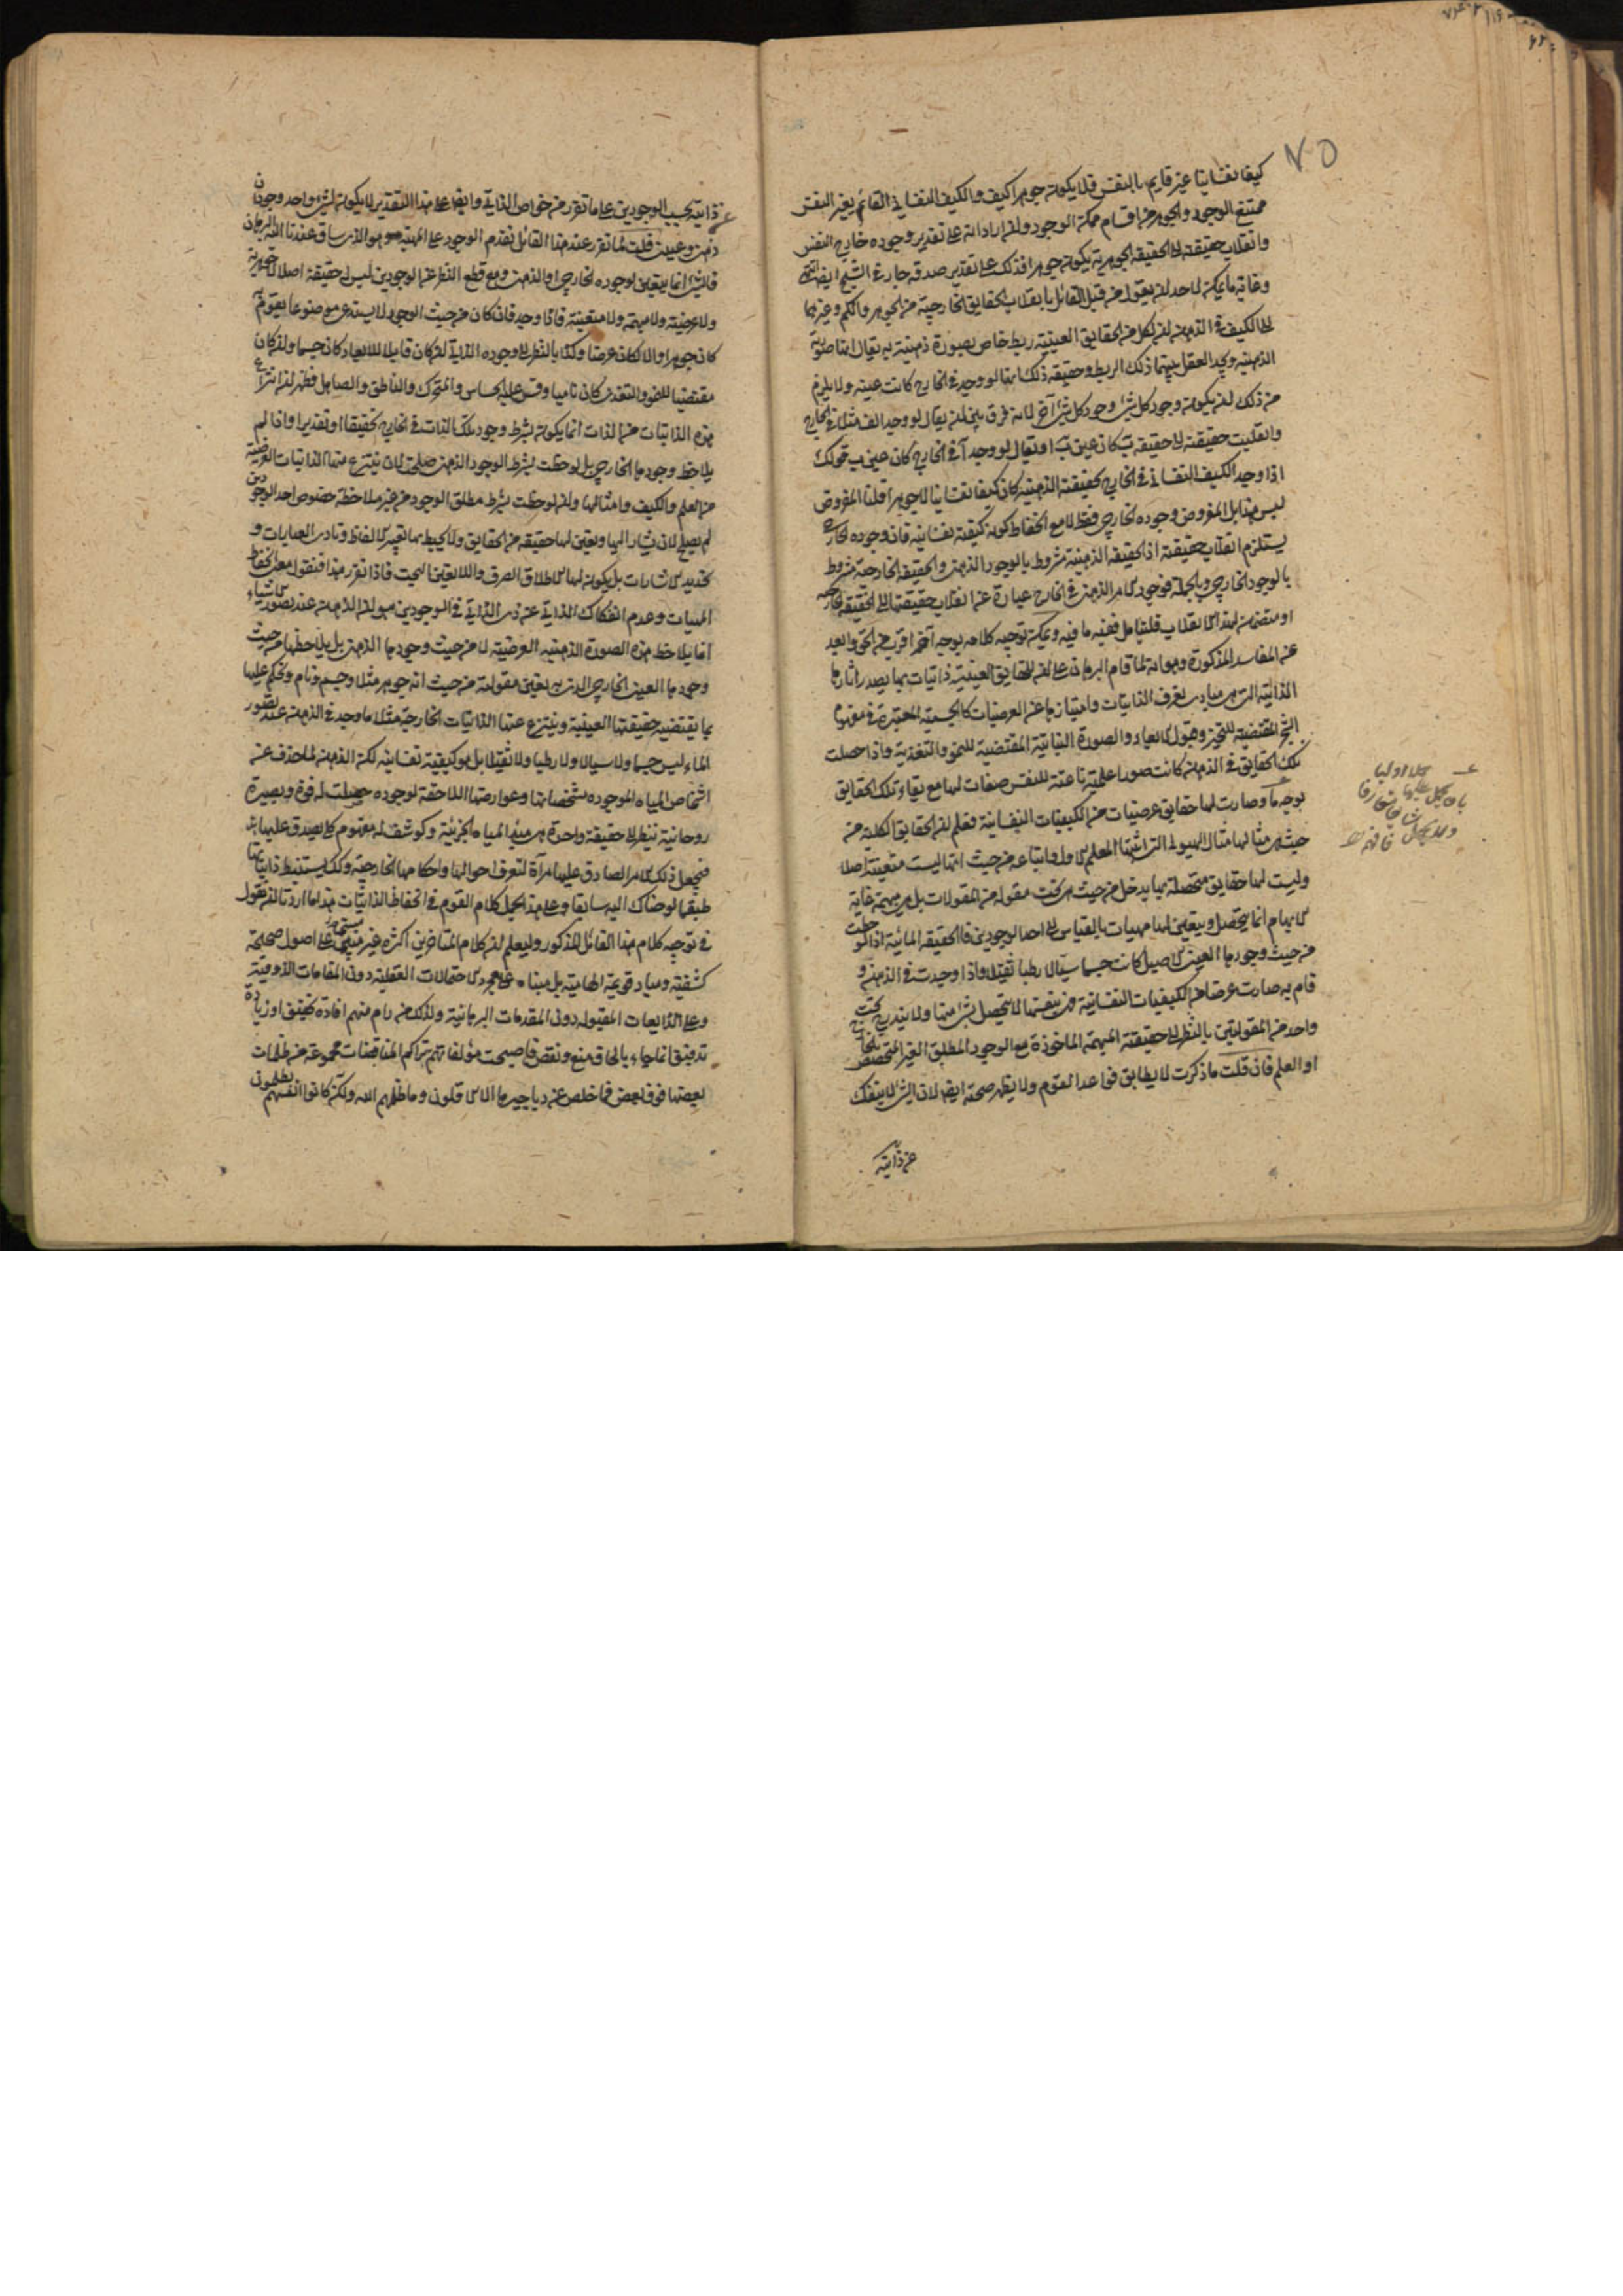 ٧٥
كيفا نفسانيا غير قايم بالنفس فلا يكون جوهرا كيف والكيف النفساني القائم بغير النفس
ممتنع الوجود والجوهر من اقسام ممكن الوجود وان اراد انه على تقدير وجوده خارج النفس
وانقلاب حقيقته الى الحقيقة الجوهرية يكون جوهرا فذلك على تقدير صدقه جار في الشبح ايضا
وغاية ما يمكن لاحد ان يقول من قبل القائل بانقلاب الحقايق الخارجية من الجوهر والكم وغيرهما
الى الكيف في الذهن ان لكل من الحقايق العينية ربط خاص بصورة ذهنية به يقال انها صورته
الذهنية ويجد العقل بينهما ذلك الربط وحقيقة ذلك انها لو وجد في الخارج كانت عينه ولا يلزم
من ذلك ان يكون وجود كل شئ وجود كل شئ آخر لانه فرق بين ان يقال لو وجد الف مثلا في الخارج
وانقلبت حقيقته الى حقيقة ب كان عين ب او يقال لو وجد آ في الخارج كان عين ب قولك
اذا وجد الكيف النفساني في الخارج كحقيقته الذهنية كان كيفا نفسانيا لا جوهرا قلنا المفروض
ليس هذا بل المفروض وجوده الخارجي فقط لا مع انحفاظ كونه كيفية نفسانية فان وجوده الخارجي
يستلزم انقلاب حقيقته اذ الحقيقة الذهنية مشروط بالوجود الذهني والحقيقة الخارجية مشروط
بالوجود الخارجي وبالجملة فوجود الامر الذهني في الخارج عبارة عن انقلاب حقيقتها الى الحقيقة الخارجية
او متضمن لهذا الانقلاب فليتامل ففيه ما فيه ويمكن توجيه كلامه بوجه آخر اقرب من الحق وابعد
عن المفاسد المذكورة وهو انه لما قام البرهان على ان للحقايق العينية ذاتيات بها يصدر اثارها
الذاتية التي هي مبادى تعرف الذاتيات وامتيازها عن العرضيات كالجسمية المعتبرة في مفهوم
الشجر المقتضية للتحيز وقبول الابعاد والصورة النباتية المقتضية للنمو والتغذية واذا حصلت
تلك الحقايق في الذهن كانت صورا علمية ناعتة للنفس صفات لها مع بقاء تلك الحقايق
بوجه ما وصارت لها حقايق عرضيات من الكيفيات النفسانية فعلم ان الحقايق الكلية من
حيث هي مثالها مثال الهيولى التي اثبتها المعلم الاول واتباعه من حيث انها ليست متعينة اصلا
وليست لها حقايق متحصلة بها يدخل من حيث هي تحت مقولة من المقولات بل هي مبهمة غاية
الابهام انما يتحصل ويتعين لها مهيات بالقياس الى احد الوجودين فالحقيقة المائية اذا لوحظت
من حيث وجودها العيني الاصيل كانت جسما سيالا رطبا ثقيلا واذا وجدت في الذهن و
قام به صارت عرضا من الكيفيات النفسانية وهي بنفسها لا يتحصل بشئ منهما ولا يندرج تحت
واحد من المقولتين بالنظر الى حقيقته المبهمة الماخوذة مع الوجود المطلق الغير المتخصص بالخارج
او العلم فان قلت ما ذكرت لا يطابق قواعد القوم ولا يظهر صحته ايضا لان الشئ لا ينفك
عن ذاتيته
عن ذاتيته بحسب الوجودين على ما تقرر من خواص الذاتي وايضا على هذا التقدير لا يكون لشئ واحد وجودان
ذهني وعيني قلت لما تقرر عند هذا القائل تقدم الوجود على المهية وهو الذي ساق عندنا اليه البرهان
فالشئ انما يتعين لوجوده الخارجي او الذهني ومع قطع النظر عن الوجودين ليس له حقيقة اصلا لا جوهرية
ولا عرضية ولا مبهمة ولا متعينة فاذا وجد فان كان من حيث الوجود لا يستدعى موضوعا يقوم به
كان جوهرا والا لكان عرضا وكذا بالنظر الى وجوده الذاتي ان كان قابلا للابعاد كان جسما وان كان
مقتضيا للنمو والتغذي كان ناميا وقس عليه الحساس والمتحرك والناطق والصاهل فظهر ان انتزاع
هذه الذاتيات من الذات انما يكون بشرط وجود تلك الذات في الخارج تحقيقا او تقديرا واذا لم
يلاحظ وجودها الخارجي بل لوحظت بشرط الوجود الذهني صلحت لان ينتزع منها الذاتيات العرضية
من العلم والكيف وامثالهما وان لوحظت بشرط مطلق الوجود من غير ملاحظة خصوص احد الوجودين
لم يصلح لان يشار اليها وتعين لها حقيقة من الحقايق ولا يحيط بها تعبير الالفاظ وتادى العبارات و
تحديد الاشارات بل يكون لها الاطلاق الصرف واللاتعين البحت فاذا تقرر هذا فنقول معنى انحفاظ
المهيات وعدم انفكاك الذاتي عن ذى الذاتي في الوجودين هو ان الذهن عند تصور الاشياء
انما يلاحظ هذه الصورة الذهنية العرضية لا من حيث وجودها الذهني بل يلاحظها من حيث
وجودها العيني الخارجي الذي به يتعين مقولته من حيث انه جوهر مثلا وجسم ونام ويحكم عليها
بما يقتضيه حقيقتها العينية وينتزع عنها الذاتيات الخارجية مثلا ما وجد في الذهن عند تصور
الماء ليس جسما ولا سيالا ولا رطبا ولا ثقيلا بل هو كيفية نفسانية لكن الذهن لما حذف عن
اشخاص المياه الموجوده مشخصاتها وعوارضها اللاحقة لوجوده حصلت له قوة وبصيرة
روحانية ينظر الى حقيقة واحدة هي مبدأ المياه الجزئية وكوشف له مفهوم كلي يصدق عليها
فيجعل ذلك الامر الصادق عليها مرآة لتعرف احوالها واحكامها الخارجية وكذا يستنبط ذاتياتها
طبقا لوضناك اليه سابقا وعلى هذا يحمل كلام القوم في انحفاظ الذاتيات هذا ما اردنا ان نقول
في توجيه كلام هذا القائل المذكور وليعلم ان كلام المتاخرين اكثره غير مبتنى على اصول صحيحة
كشفية ومباد قويمة الهامية بل مبناه على مجرد الاحتمالات العقلية دون المقامات الذوقية
وعلى الذايعات المقبولة دون المقدمات البرهانية ولذلك من رام منهم افادة تحقيق او زيادة
تدقيق انما جاء بالحاق منع ونقض فاصبحت مؤلفاتهم بتراكم المناقضات مجموعة من ظلمات
بعضها فوق بعض فما خلص عن دياجيرها الا الاقلون وما ظلمهم الله ولكن كانوا انفسهم يظلمون